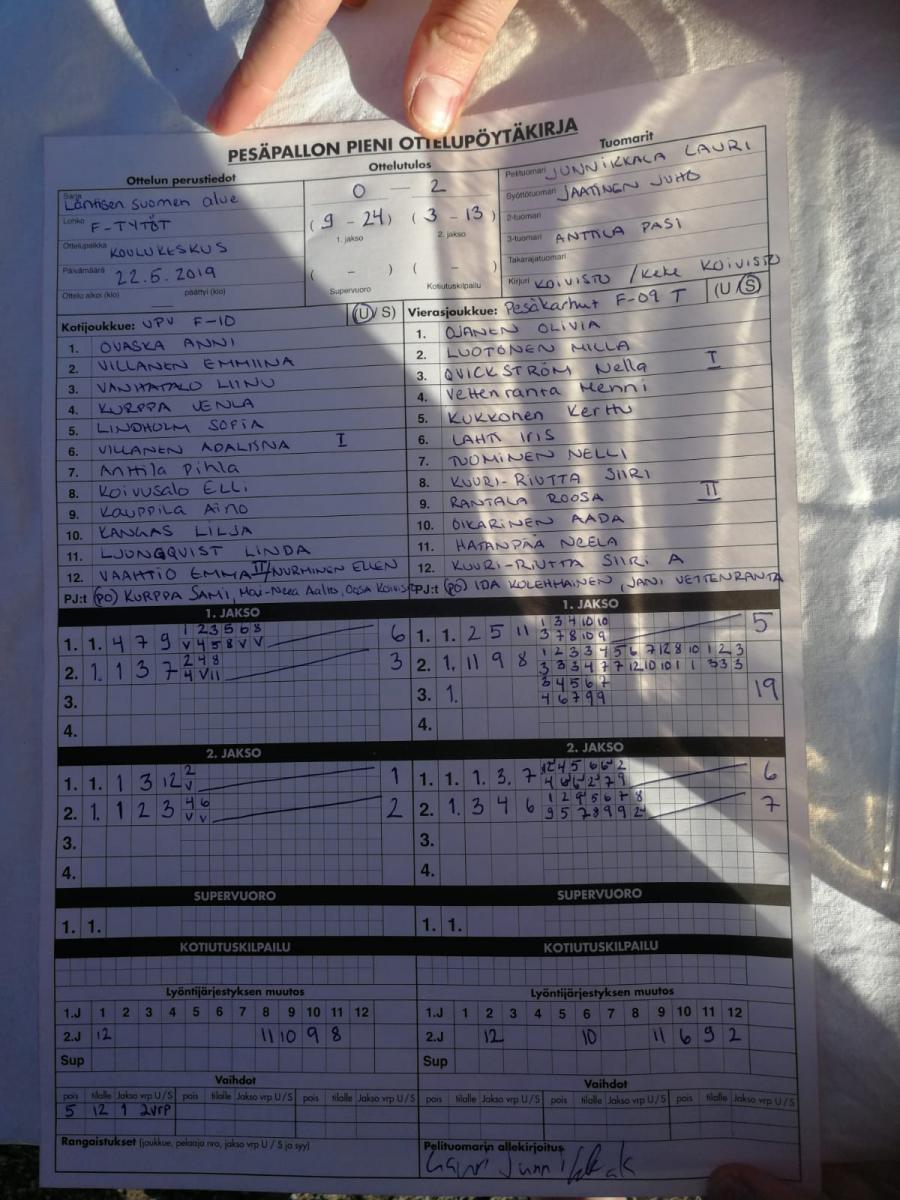 PESÄPALLON PIENI OTTELUPÖYTÄKIRJA
Ottelun perustiedot
Sarja Läntisen suomen alue
Lohko F-TYTÖT
Ottelupaikka KOULUKESKUS
Päivämäärä 22.5.2019
Ottelu alkoi (klo) päättyi (klo)
Ottelutulos
0 - 2
(9 - 24) (3 - 13)
1. jakso 2. jakso
( - ) ( - )
Supervuoro Kotiutuskilpailu
Tuomarit
Pelituomari JUNNIKKALA LAURI
Syöttötuomari JAATINEN JUHO
2-tuomari
3-tuomari ANTTILA PASI
Takarajatuomari
Kirjuri KOIVISTO / Keke KOIVISTO
Kotijoukkue: UPV F-10 (U/S)
1. OVASKA ANNI
2. VILLANEN EMMIINA
3. VANHATALO LIINU
4. KURPPA VENLA
5. LINDHOLM SOFIA
6. VILLANEN ADALIINA I
7. Anttila Pihla
8. Koivusalo Elli
9. Kauppila Aino
10. KANGAS LILJA
11. LJUNGQVIST LINDA
12. VAAHTIO EMMA II/NURMINEN ELLEN
PJ:t (PÖ) KURPPA SAMI, Mai-Neea Aalto,
Vierasjoukkue: Pesäkarhut F-09 T (U/S)
1. OJANEN OLIVIA
2. LUOTONEN MILLA
3. QVICKSTRÖM Nella I
4. Vettenranta Henni
5. Kukkonen Kerttu
6. LAHTI IRIS
7. TUOMINEN NELLI
8. KUURI-RIUTTA SIIRI
9. RANTALA ROOSA II
10. OIKARINEN AADA
11. HATANPÄÄ NEELA
12. KUURI-RIUTTA SIIRI A
PJ:t (PÖ) IDA KOLEHMAINEN, JANI VETTENRANTA
1. JAKSO
1. 1. 4 7 9 1 2 3 5 6 8 6
V 4 5 8 V V
2. 1. 1 3 7 2 4 8 3
4 V 11
3.
4.
1. JAKSO
1. 1. 2 5 11 1 3 4 10 10 5
3 7 8 10 9
2. 1. 11 9 8 1 2 3 3 4 5 6 7 12 8 10 1 2 3
3 3 3 4 7 7 12 10 10 1 1 3 3 3
3. 1. 3 4 5 6 7 19
4 6 7 9 9
4.
2. JAKSO
1. 1. 1 3 12 2 1
V
2. 1. 1 2 3 4 6 2
V V
3.
4.
2. JAKSO
1. 1. 1. 3. 7 6
2. 1. 3 4 6 7
3.
4.
SUPERVUORO
1. 1.
SUPERVUORO
1. 1.
KOTIUTUSKILPAILU
KOTIUTUSKILPAILU
Lyöntijärjestyksen muutos
1.J 1 2 3 4 5 6 7 8 9 10 11 12
2.J 12 11 10 9 8
Sup
Lyöntijärjestyksen muutos
1.J 1 2 3 4 5 6 7 8 9 10 11 12
2.J 12 10 11 6 9 2
Sup
Vaihdot
pois tilalle Jakso vrp U/S pois tilalle Jakso vrp U/S pois tilalle Jakso vrp U/S
5 12 1 2vrp
Vaihdot
pois tilalle Jakso vrp U/S pois tilalle Jakso vrp U/S pois tilalle Jakso vrp U/S
Rangaistukset (joukkue, pelaaja nro, jakso vrp U / S ja syy)
Pelituomarin allekirjoitus
Lauri Junnikkala